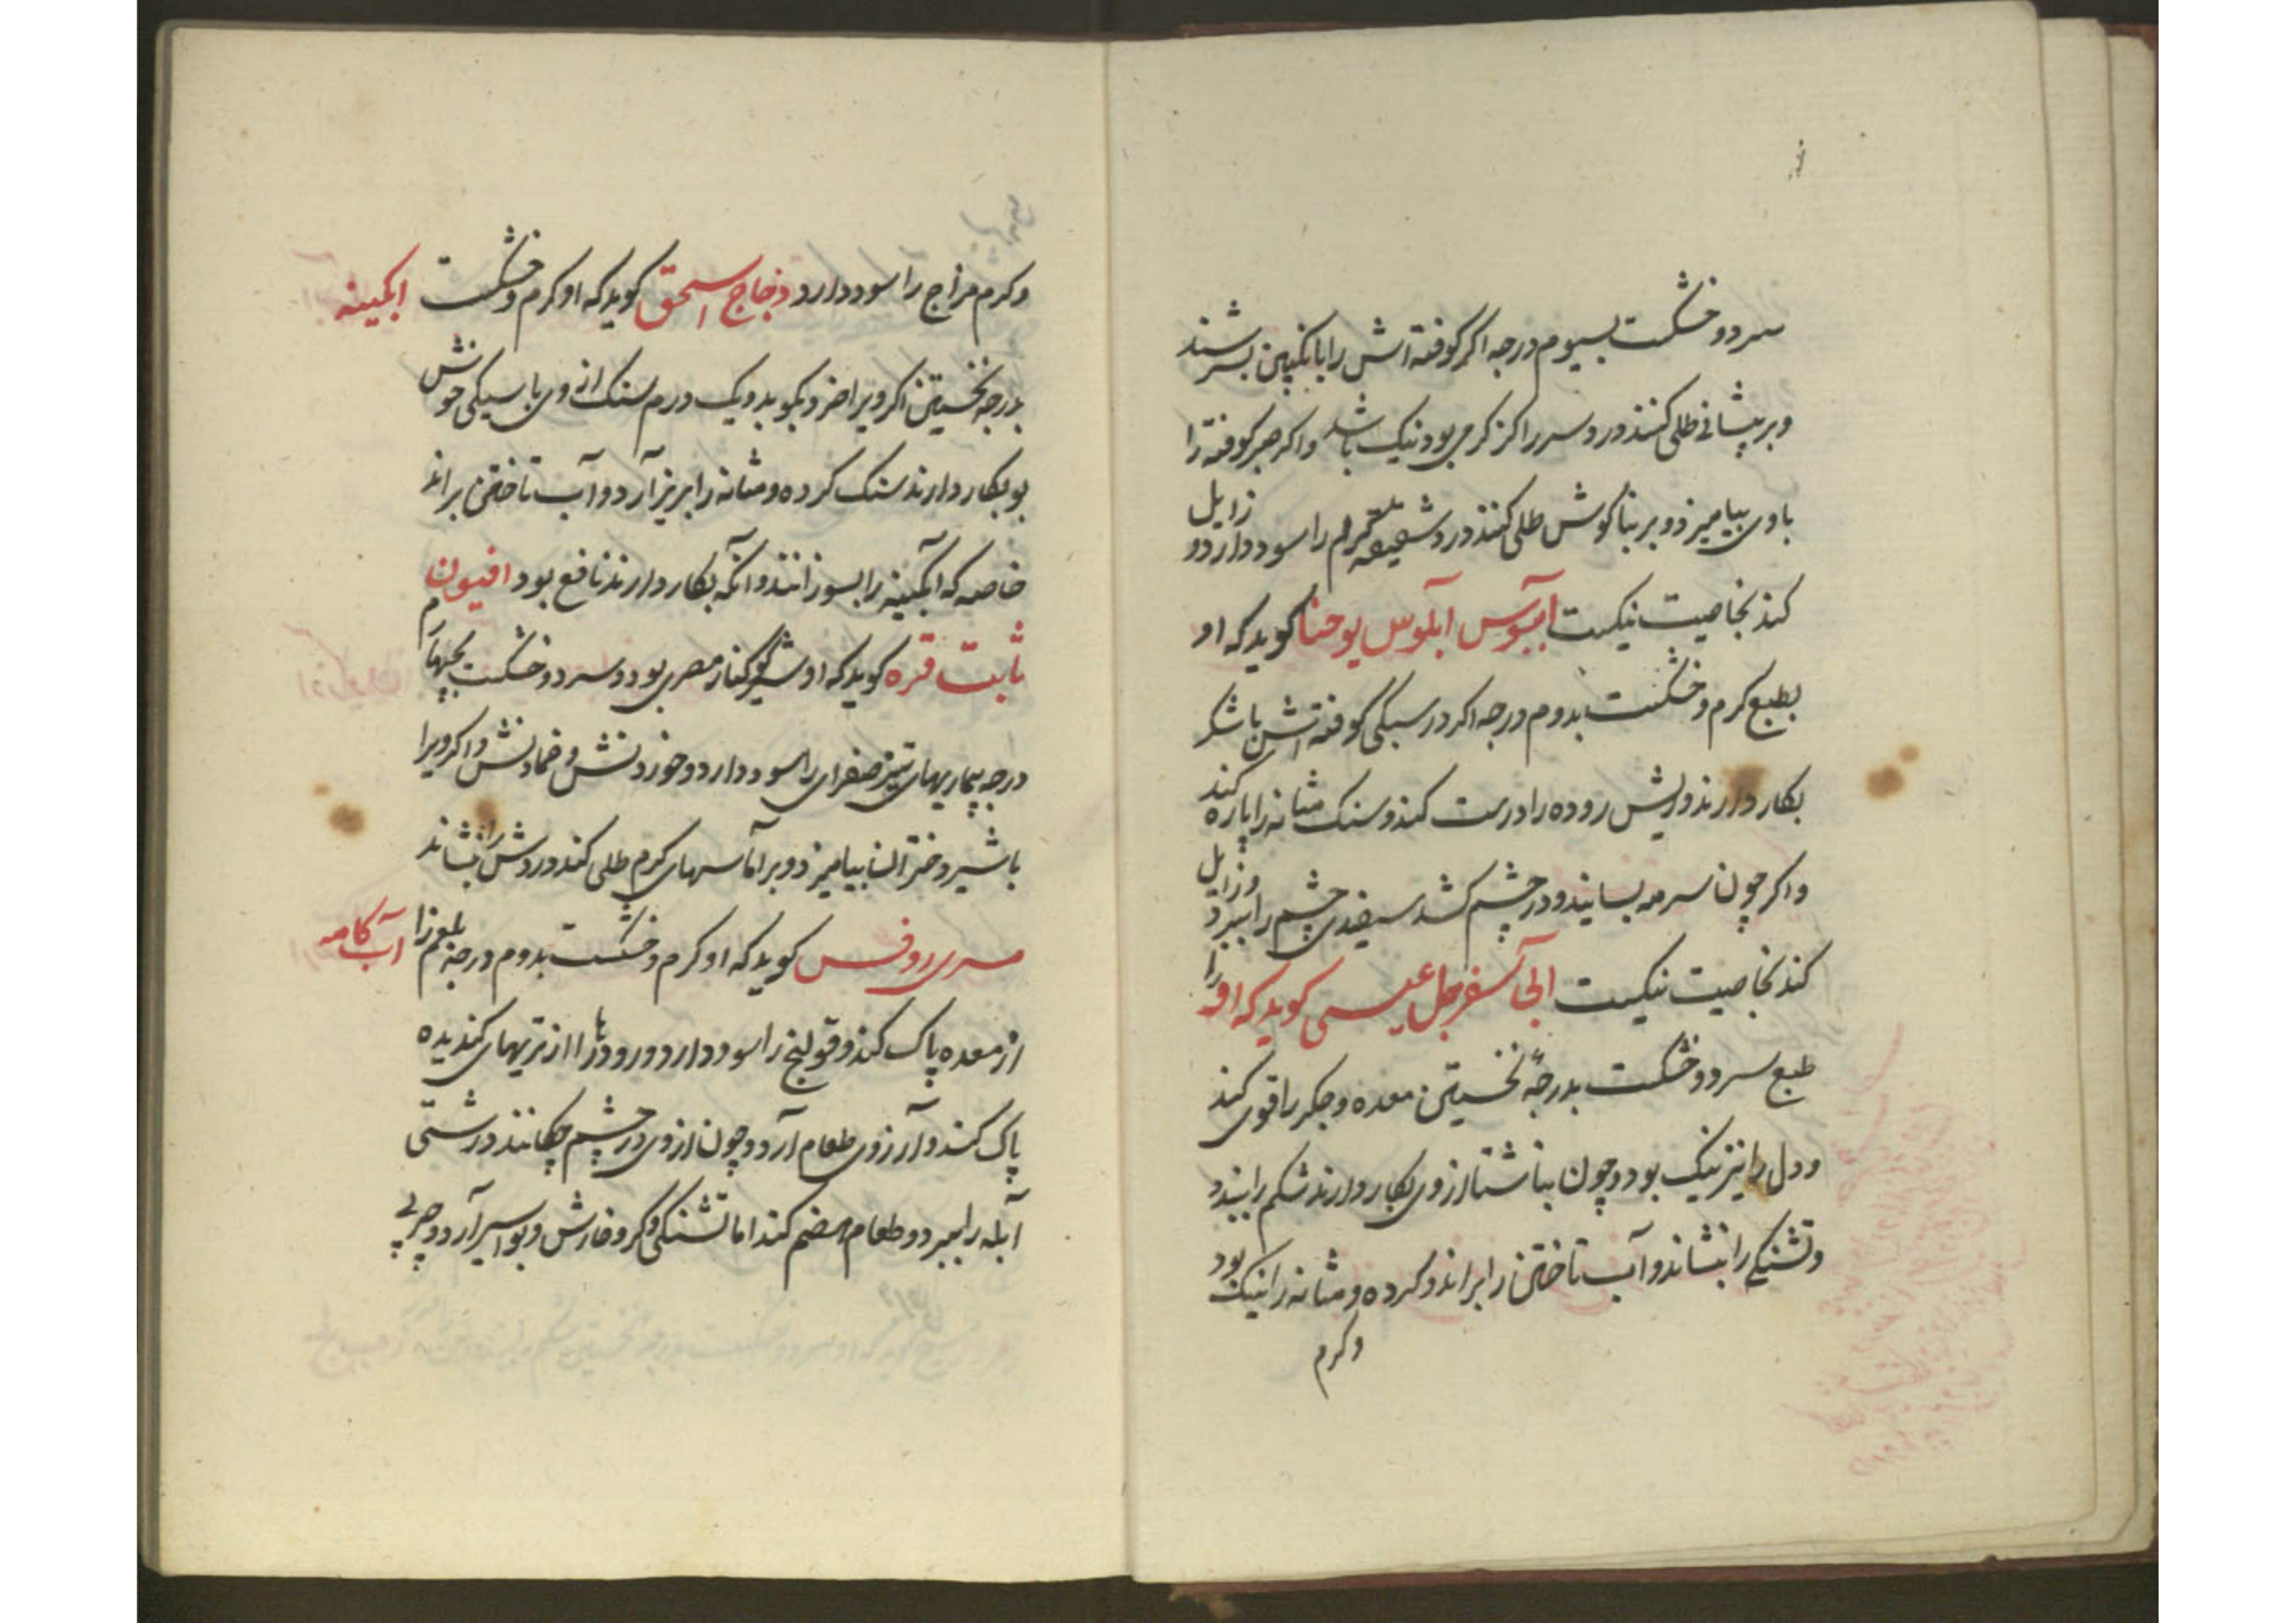 سرد و خشکست بسیوم درجه اکر کوفته اش را بانکبین بسرشند
و بر پیشانی طلی کنند درد سر را کز کرمی بود نیک باشد واکر صبر کوفته را
با وی بیامیزد و بر بناکوش طلی کنند درد شقیقه کرم را سود دارد و زایل
کند بخاصیت نیکست آبنوس آبلوس یوحنا کوید که او
بطبع کرم و خشکست بدوم درجه اکر در سیکی کوفته اش با شکر
بکار دارند و ریش روده را درست کند و سنک مثانه را پاره کند
واکر چون سرمه بسایند و در چشم کشد سپیدی چشم را ببرد و زایل
کند بخاصیت نیکست آبی سفرجل عیسی کوید که او را
طبع سرد و خشکست بدرجهٔ نخستین معده و جکر را قوی کند
و دل را نیز نیک بود و چون بناشتا از وی بکار دارند شکم را ببندد
و تشنکی را بنشاند و آب تاختن را براند و کرده و مثانه را نیک بود
و کرم
و کرم مزاج را سود دارد زجاج اسحق کوید که او کرم و خشکست ابکینه
بدرجه نخستین اکر ویرا خرد بکوبد و یک درم سنک از وی با سیکی خوش
بو بکار دارند سنک کرده و مثانه را بریزآرد و آب تاختن براند
خاصه که آبکینه را بسوزانند وانکه بکار دارند نافع بود افیون
ثابت قره کوید که او شیر کوکنار مصری بود و سرد و خشکست بچهارم
درجه بیماریهای تیز صفرای را سود دارد و خوردنش و ضمادنش واکر ویرا
با شیر دختران بیامیزد و بر آماسهای کرم طلی کند دردش را بنشاند
مری روفس کوید که او کرم و خشکست بدوم درجه بلغم را آب کامه
از معده پاک کند و قولنج را سود دارد و رودها را از تریهای کندیده
پاک کند و آرزوی طعام آرد و چون از وی در چشم چکانند درشتی
آبله را ببرد و طعام هضم کند اما تشنکی و کر و خارش و بواسیر آرد و چربی